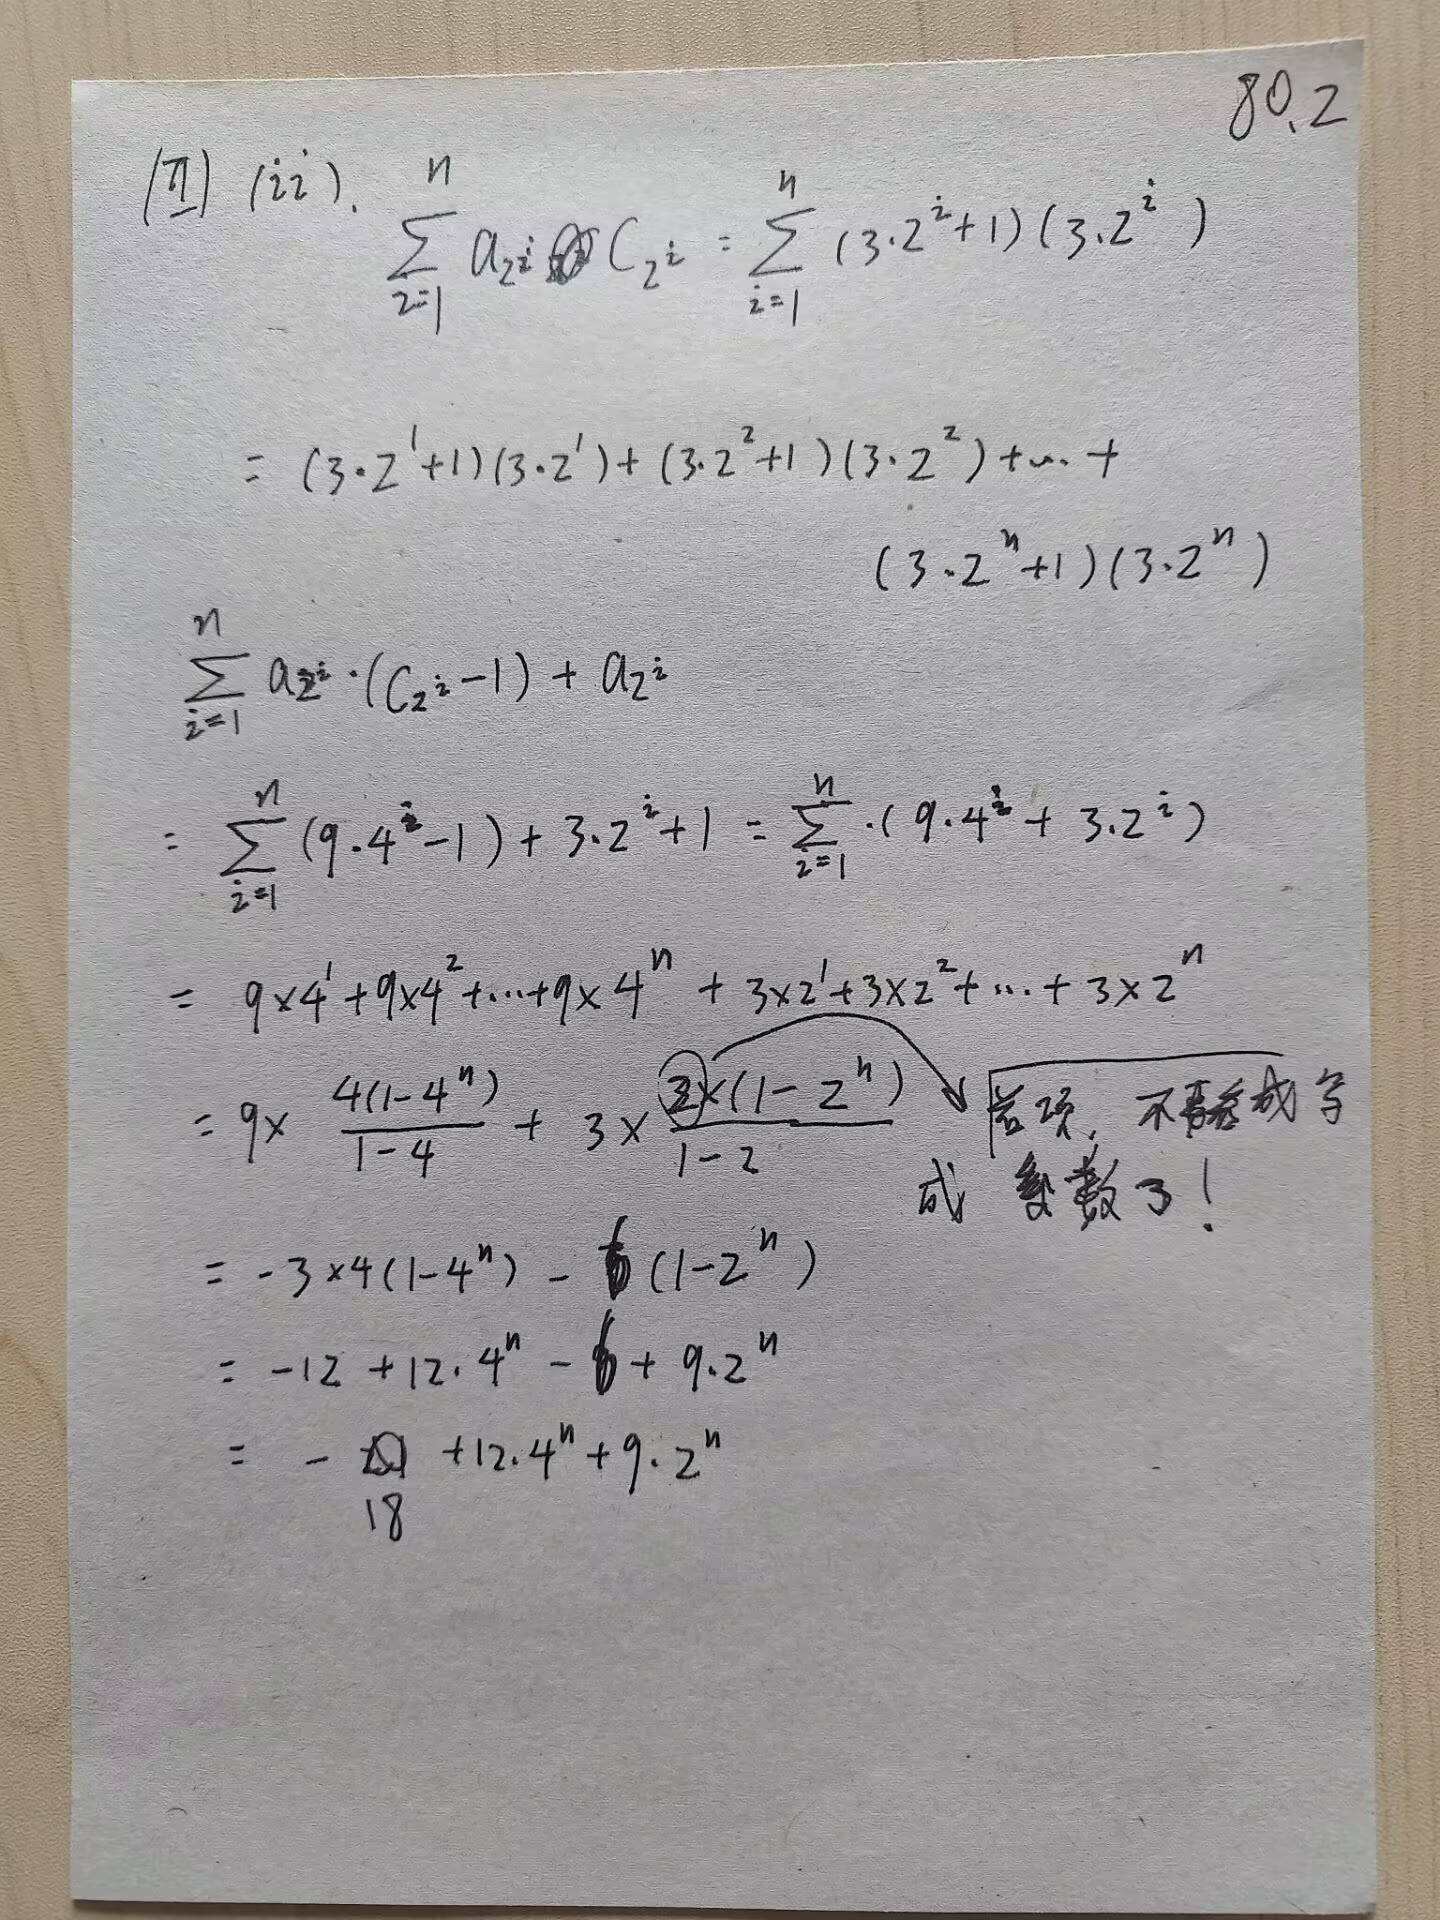 80.2
(II) (ii). \sum_{i=1}^{n} a_{2^i} C_{2^i} = \sum_{i=1}^{n} (3·2^i+1)(3·2^i)
= (3·2^1+1)(3·2^1)+(3·2^2+1)(3·2^2)+…+
(3·2^n+1)(3·2^n)
\sum_{i=1}^{n} a_{2^i}·(C_{2^i}-1) + a_{2^i}
= \sum_{i=1}^{n} (9·4^i-1) + 3·2^i+1 = \sum_{i=1}^{n}·(9·4^i + 3·2^i)
= 9×4^1+9×4^2+…+9×4^n + 3×2^1+3×2^2+…+3×2^n
= 9× \frac{4(1-4^n)}{1-4} + 3× \frac{2×(1-2^n)}{1-2} 首项, 不
成 数了!
= -3×4(1-4^n) - 6(1-2^n)
= -12 +12·4^n - 6 + 9·2^n
= - 18 +12·4^n+9·2^n